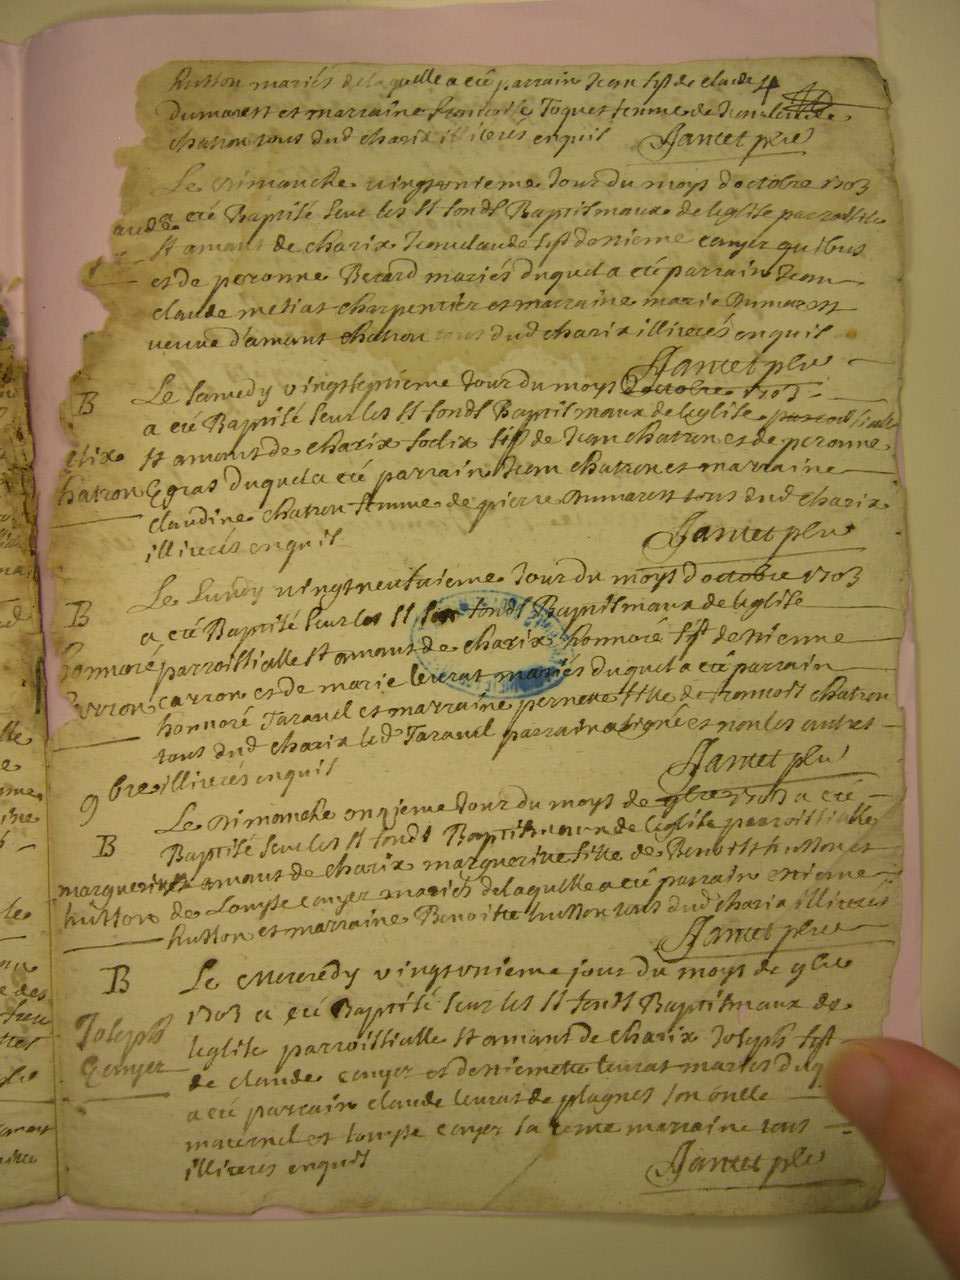 hutton mariés de laquelle a eté parrain Jean fils de claude
Dumarest et marraine françoise Joquet femme de
chatron tous dud charix illiterés enquis Jantet ptre
Le Dimanche vingtunieme Jour du moys doctobre 1703
aude a eté Baptisé sur les St fonds Baptismaux de leglise parroissialle
St amant de charix Jean claude fils detienne conyer
et de peronne Berard mariés duquel a eté parrain Jean
claude metias charpentier et marraine marie Dumarest
veuve d'amant chatron tous dud charix illiterés enquis
Jantet ptre
B Le Samedy vingtseptieme Jour du moys doctobre 1703
a eté Baptisé sur les St fonds Baptismaux de leglise parroissialle
felix St amant de charix felix fils de Jean chatron et de peronne
chatron gras duquel a eté parrain Jean chatron et marraine
claudine chatron femme de pierre Dumarest tous dud charix
illiterés enquis Jantet ptre
B Le Lundy vingtneufvieme Jour du moys doctobre 1703
a eté Baptisé sur les St fonds Baptismaux de leglise
honnoré parroissialle St amant de charix honnoré fils detienne
carron et de marie leurat mariés duquel a eté parrain
honnoré Taravel et marraine pernette fille de francois chatron
tous dud charix led Taravel parrain a signé et non les autres
illiterés enquis Jantet ptre
9bre
Le Dimanche onzieme Jour du moys de 9bre 1703 a eté
B Baptisé sur les St fonds Baptismaux de leglise parroissialle
marguerite St amant de charix marguerite fille de Benoist hutton et
hutton de Lompse conyer mariés de laquelle a eté parrain etienne
hutton et marraine Benoitte hutton tous dud charix illiterés
Jantet ptre
B Le Mercredy vingtunieme jour du moys de 9bre
1703 a eté Baptisé sur les St fonds Baptismaux de
Joseph leglise parroissialle St amant de charix Joseph fils
Conyer de claude conyer et detiennette leurat mariés duq
a eté parrain claude leurat de plagnes son oncle
maternel et Lompse conyer sa marraine tous
illiterés enquis Jantet ptre